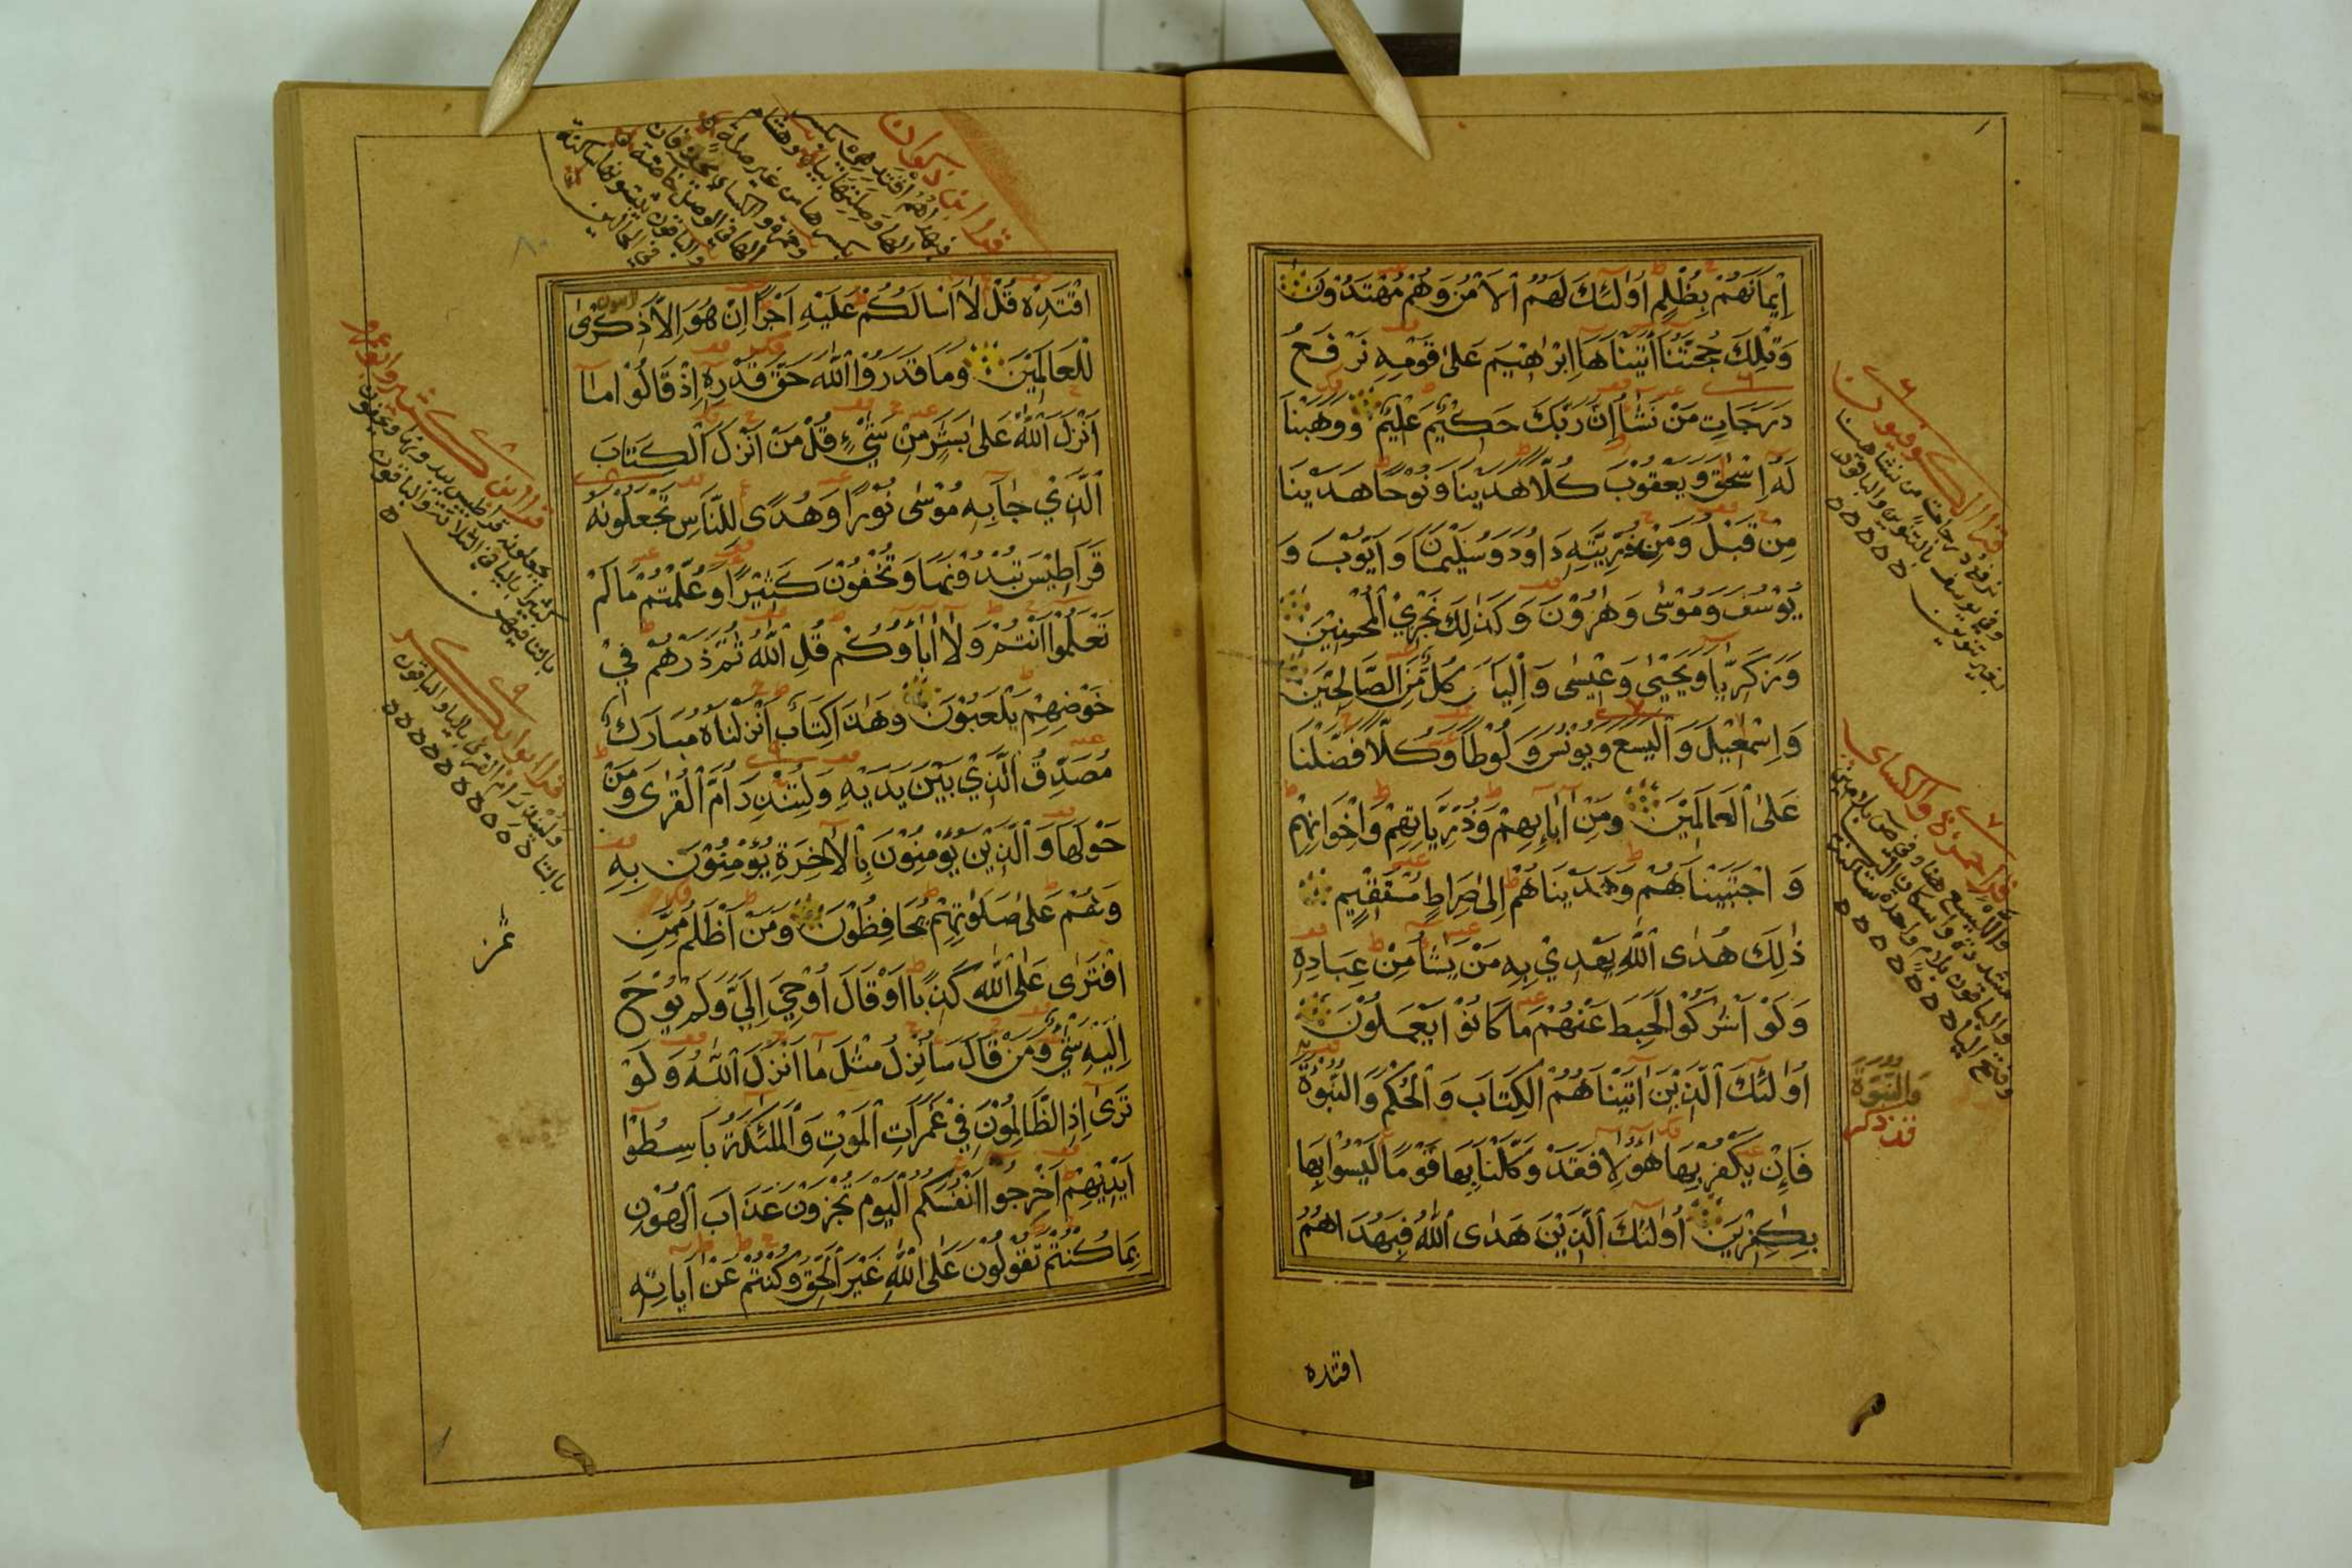 اِيْمَانَهُمْ بِظُلْمٍ اُولٰئِكَ لَهُمُ الْاَمْنُ وَهُمْ مُهْتَدُوْنَ
وَتِلْكَ حُجَّتُنَا اٰتَيْنَاهَا اِبْرٰهِيْمَ عَلٰى قَوْمِهٖ نَرْفَعُ
دَرَجَاتٍ مَنْ نَشَأُ اِنَّ رَبَّكَ حَكِيْمٌ عَلِيْمٌ وَوَهَبْنَا
لَهُ اِسْحٰقَ وَيَعْقُوْبَ كُلًّا هَدَيْنَا وَنُوْحًا هَدَيْنَا
مِنْ قَبْلُ وَمِنْ ذُرِّيَّتِهِ دَاوُدَ وَسُلَيْمٰنَ وَاَيُّوْبَ وَ
يُوْسُفَ وَمُوْسٰى وَهٰرُوْنَ وَكَذٰلِكَ نَجْزِي الْمُحْسِنِيْنَ
وَزَكَرِيَّا وَيَحْيٰى وَعِيْسٰى وَاِلْيَاسَ كُلٌّ مِنَ الصَّالِحِيْنَ
وَاِسْمٰعِيْلَ وَالْيَسَعَ وَيُوْنُسَ وَلُوْطًا وَكُلًّا فَضَّلْنَا
عَلَى الْعَالَمِيْنَ وَمِنْ اٰبَائِهِمْ وَذُرِّيَّاتِهِمْ وَاِخْوَانِهِمْ
وَاجْتَبَيْنَاهُمْ وَهَدَيْنَاهُمْ اِلٰى صِرَاطٍ مُسْتَقِيْمٍ
ذٰلِكَ هُدَى اللّٰهِ يَهْدِيْ بِهِ مَنْ يَشَأُ مِنْ عِبَادِهِ
وَلَوْ اَشْرَكُوْا لَحَبِطَ عَنْهُمْ مَا كَانُوْا يَعْمَلُوْنَ
اُولٰئِكَ الَّذِيْنَ اٰتَيْنَاهُمُ الْكِتَابَ وَالْحُكْمَ وَالنُّبُوَّةَ
فَاِنْ يَكْفُرْ بِهَا هٰؤُلَاءِ فَقَدْ وَكَّلْنَا بِهَا قَوْمًا لَيْسُوْا بِهَا
بِكٰفِرِيْنَ اُولٰئِكَ الَّذِيْنَ هَدَى اللّٰهُ فَبِهُدَاهُمُ
اقتده
قرا الكوفيون
نرفع درجات من نشا هنا
وفي يوسف بالتنوين والباقون
بغير تنوين
قرا حمزة والكسائي
والنبوة
اقْتَدِهْ قُلْ لَا اَسْأَلُكُمْ عَلَيْهِ اَجْرًا اِنْ هُوَ اِلَّا ذِكْرٰى
لِلْعَالَمِيْنَ وَمَا قَدَرُوا اللّٰهَ حَقَّ قَدْرِهِ اِذْ قَالُوْا مَا
اَنْزَلَ اللّٰهُ عَلٰى بَشَرٍ مِنْ شَيْءٍ قُلْ مَنْ اَنْزَلَ الْكِتَابَ
الَّذِيْ جَاءَ بِهِ مُوْسٰى نُوْرًا وَهُدًى لِلنَّاسِ تَجْعَلُوْنَهُ
قَرَاطِيْسَ تُبْدُوْنَهَا وَتُخْفُوْنَ كَثِيْرًا وَعُلِّمْتُمْ مَا لَمْ
تَعْلَمُوْا اَنْتُمْ وَلَا اٰبَاؤُكُمْ قُلِ اللّٰهُ ثُمَّ ذَرْهُمْ فِيْ
خَوْضِهِمْ يَلْعَبُوْنَ وَهٰذَا كِتَابٌ اَنْزَلْنَاهُ مُبَارَكٌ
مُصَدِّقُ الَّذِيْ بَيْنَ يَدَيْهِ وَلِتُنْذِرَ اُمَّ الْقُرٰى وَمَنْ
حَوْلَهَا وَالَّذِيْنَ يُؤْمِنُوْنَ بِالْاٰخِرَةِ يُؤْمِنُوْنَ بِهِ
وَهُمْ عَلٰى صَلٰوتِهِمْ يُحَافِظُوْنَ وَمَنْ اَظْلَمُ مِمَّنِ
افْتَرٰى عَلَى اللّٰهِ كَذِبًا اَوْ قَالَ اُوْحِيَ اِلَيَّ وَلَمْ يُوْحَ
اِلَيْهِ شَيْءٌ وَمَنْ قَالَ سَأُنْزِلُ مِثْلَ مَا اَنْزَلَ اللّٰهُ وَلَوْ
تَرٰى اِذِ الظَّالِمُوْنَ فِيْ غَمَرَاتِ الْمَوْتِ وَالْمَلٰئِكَةُ بَاسِطُوْا
اَيْدِيْهِمْ اَخْرِجُوْا اَنْفُسَكُمُ الْيَوْمَ تُجْزَوْنَ عَذَابَ الْهُوْنِ
بِمَا كُنْتُمْ تَقُوْلُوْنَ عَلَى اللّٰهِ غَيْرَ الْحَقِّ وَكُنْتُمْ عَنْ اٰيَاتِهِ
قرا ابن ذكوان
قرا ابن كثير وابو عمرو
قرا ابو بكر
ولينذر ام القرى بالياء والباقون
بالتا